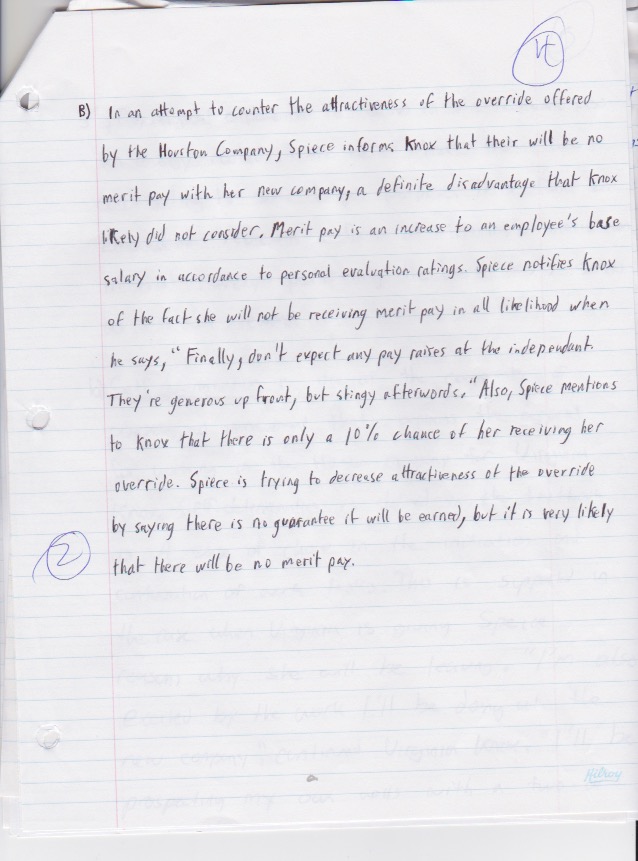 B) In an attempt to counter the attractiveness of the override offered
by the Houston Company, Spiece informs Knox that their will be no
merit pay with her new company, a definite disadvantage that Knox
likely did not consider. Merit pay is an increase to an employee's base
salary in accordance to personal evaluation ratings. Spiece notifies Knox
of the fact she will not be receiving merit pay in all likelihood when
he says, "Finally, don't expect any pay raises at the independant.
They're generous up front, but stingy afterwords." Also, Spiece mentions
to Knox that there is only a 10% chance of her receiving her
override. Spiece is trying to decrease attractiveness of the override
by saying there is no guarantee it will be earned, but it is very likely
2
that there will be no merit pay.
Hilroy